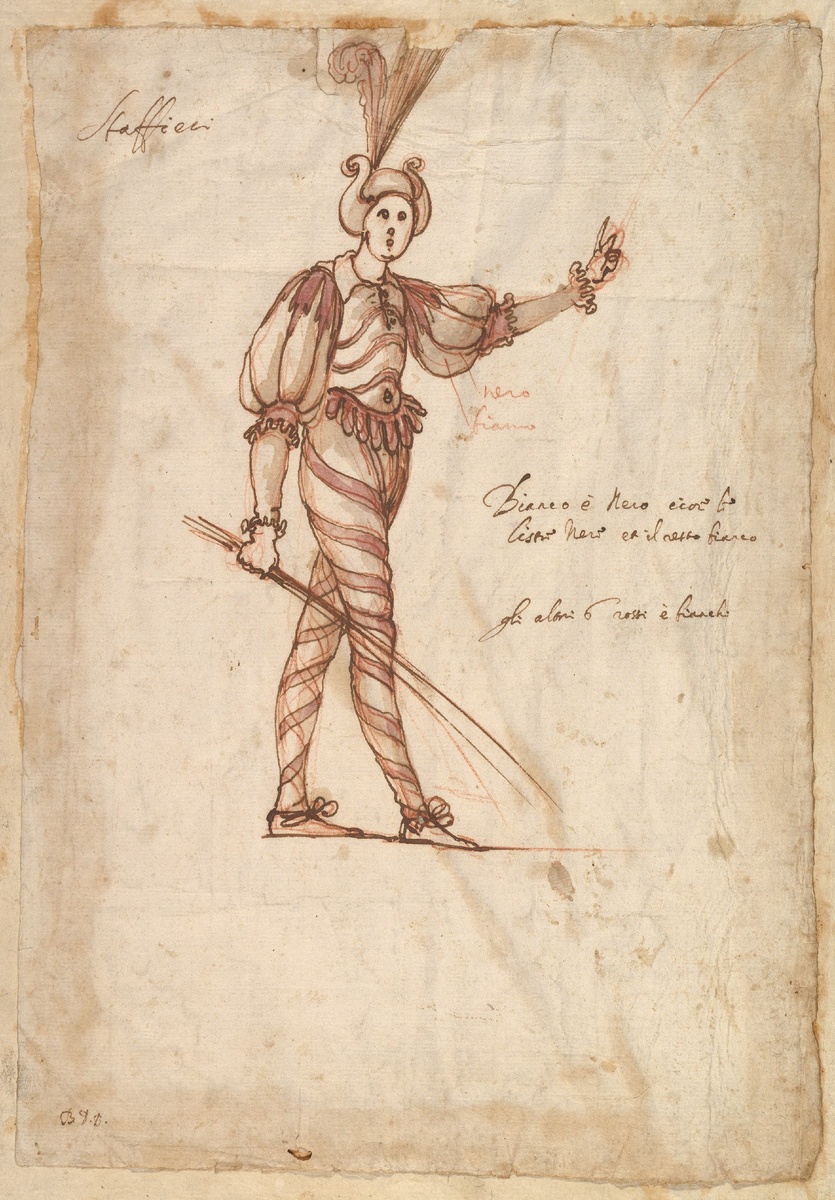 Staffieri
nero
biancho
Bianco è Nero cioè le
liste Nere et il resto bianco
gli altri 6 rossi è bianchi
B